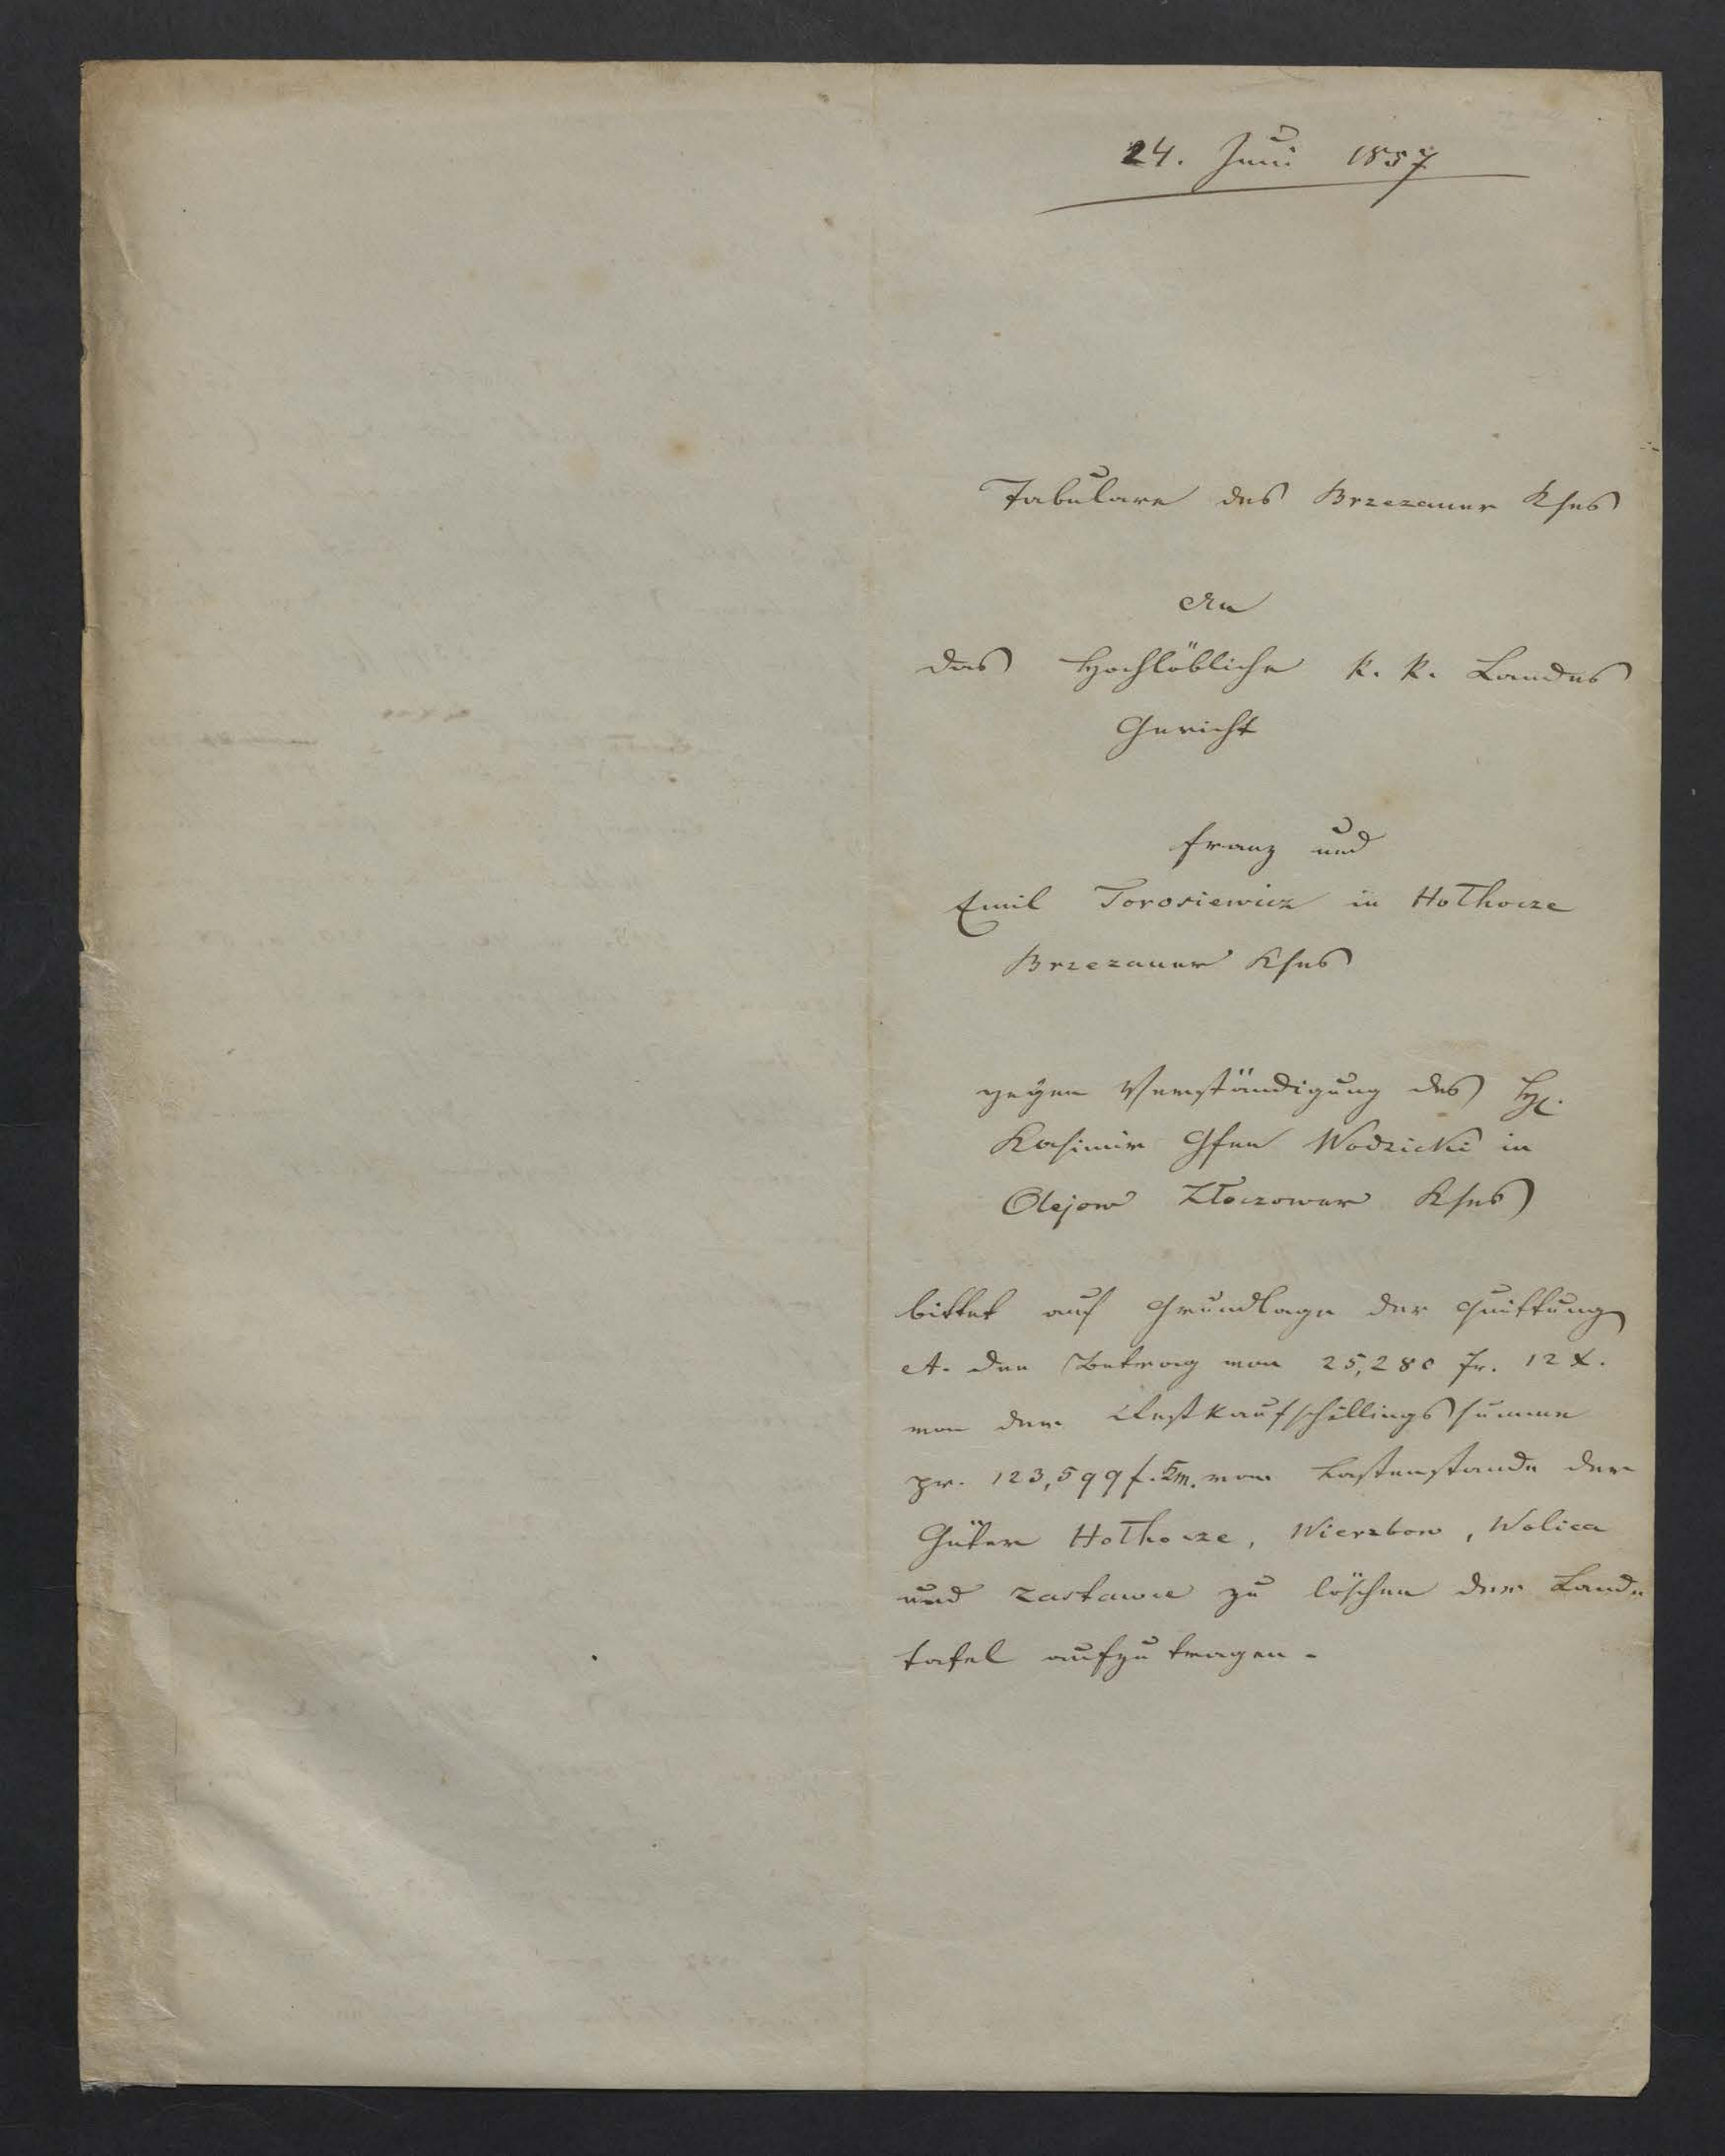 24. Juni 1857
Tabulare des Brzezaner Kses
An
das Hochlöbliche k. k. Landes
Gericht
Franz und
Emil Torosiewicz in Hołhocze
Brzezaner Kses
gegen Verständigung des H.
Kasimir Gfen Wodzicki in
Olejow Złoczower Kses
bittet auf Grundlage der Quittung
A. den Betrag von 25,280 fr. 12 x.
von der Restkaufschillingssumme
pr. 123,599 f. Km. vom Lastenstande der
Güter Hołhocze, Wierzbow, Wolica
und Zastawce zu löschen der Land
tafel aufzutragen.